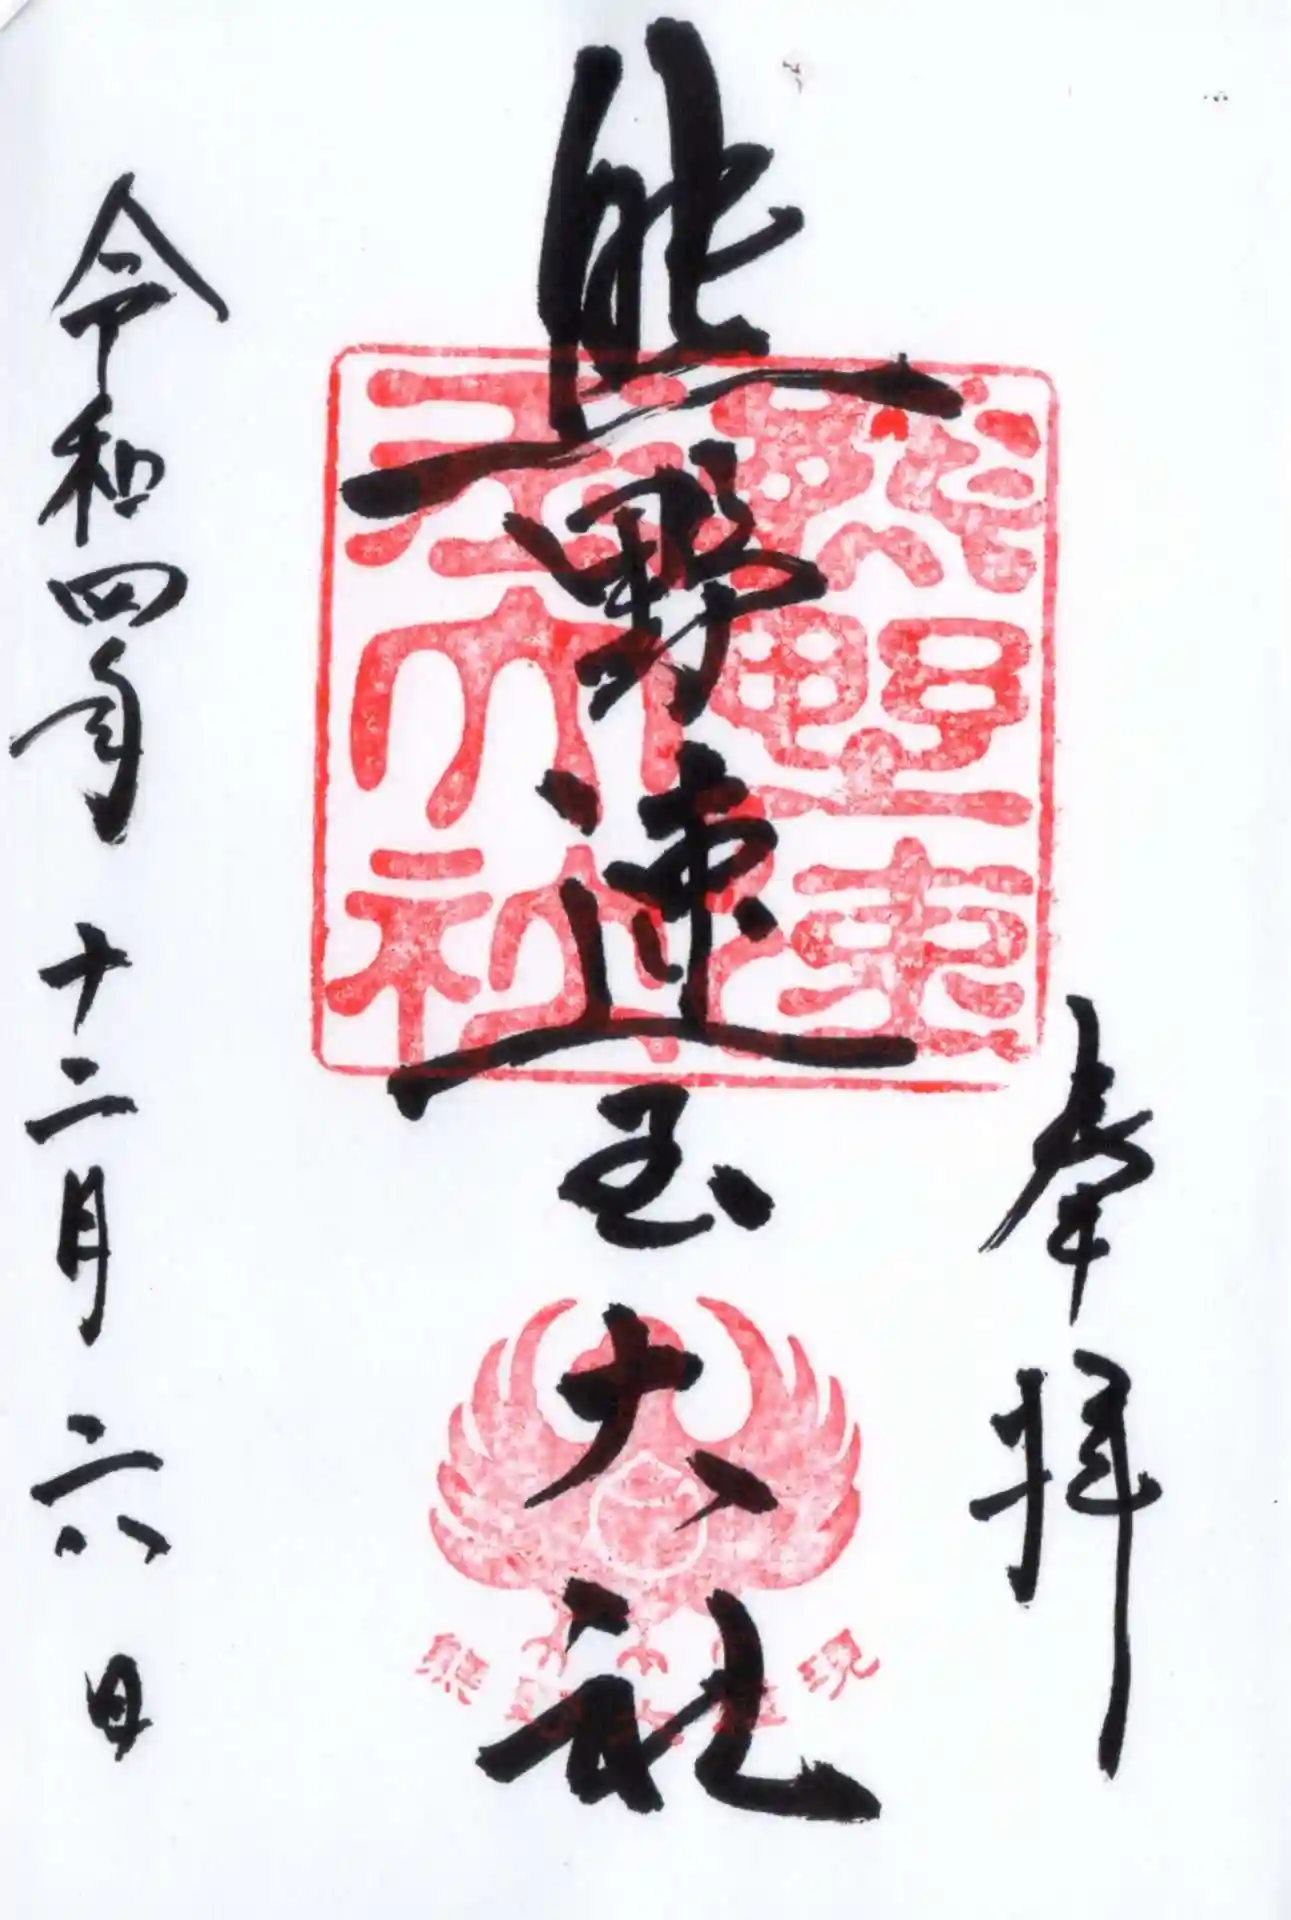 奉拝
熊野速玉大社
熊野速玉大社
令和四年十二月二六日